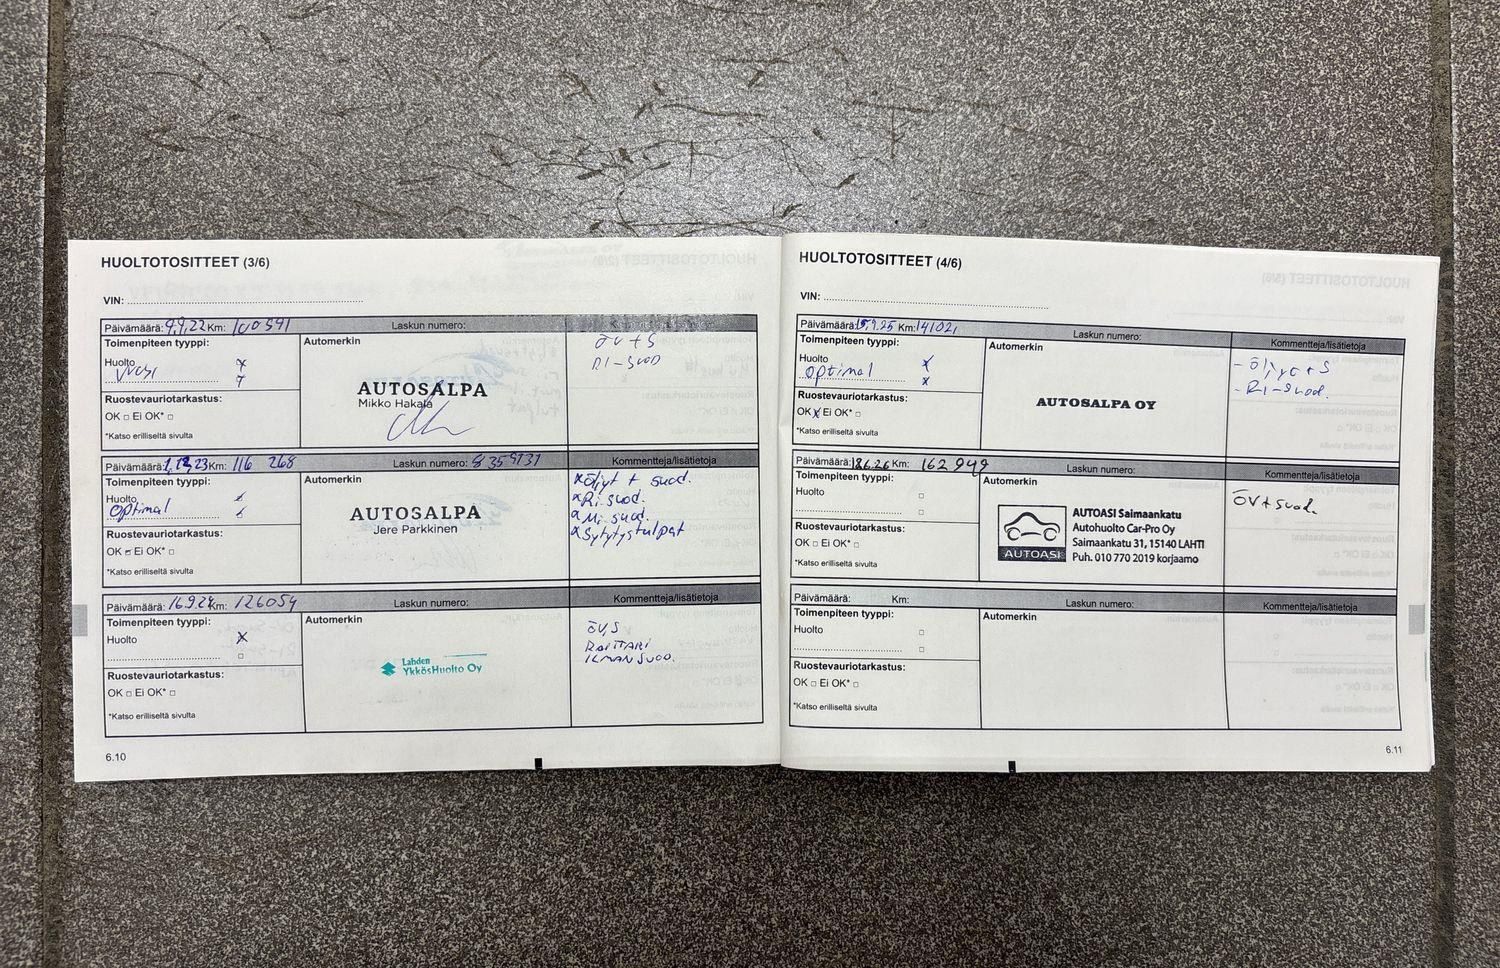 HUOLTOTOSITTEET (3/6)
VIN:
Päivämäärä: 9.9.22 Km: 100591 Laskun numero:
Toimenpiteen tyyppi: Automerkin
Huolto x
Vuosi
Ruostevauriotarkastus:
OK □ Ei OK* □
*Katso erilliseltä sivulta
AUTOSALPA
Mikko Hakala
ÖV+S
RI-SUOD
Päivämäärä: 1.12.23 Km: 116 268 Laskun numero: 8359131 Kommentteja/lisätietoja
Toimenpiteen tyyppi: Automerkin
Huolto
Optimal
Ruostevauriotarkastus:
OK □ Ei OK* □
*Katso erilliseltä sivulta
AUTOSALPA
Jere Parkkinen
xÖljyt + suod.
xRi.suod.
xMi.suod.
xSytytystulpat
Päivämäärä: 16.9.24 Km: 126054 Laskun numero: Kommentteja/lisätietoja
Toimenpiteen tyyppi: Automerkin
Huolto x
Ruostevauriotarkastus:
OK □ Ei OK* □
*Katso erilliseltä sivulta
Lahden
YkkösHuolto Oy
ÖV,S
RAITTARI
ILMANSUOD.
6.10
HUOLTOTOSITTEET (4/6)
VIN:
Päivämäärä: 15.9.25 Km: 141021 Laskun numero: Kommentteja/lisätietoja
Toimenpiteen tyyppi: Automerkin
Huolto x
Optimal x
Ruostevauriotarkastus:
OK x Ei OK* □
*Katso erilliseltä sivulta
AUTOSALPA OY
- Öljyt+S
- RI-suod.
Päivämäärä: Km: 162949 Laskun numero: Kommentteja/lisätietoja
Toimenpiteen tyyppi: Automerkin
Huolto □
Ruostevauriotarkastus:
OK □ Ei OK* □
*Katso erilliseltä sivulta
AUTOASI
AUTOASI Saimaankatu
Autohuolto Car-Pro Oy
Saimaankatu 31, 15140 LAHTI
Puh. 010 770 2019 korjaamo
ÖV+suod.
Päivämäärä: Km: Laskun numero: Kommentteja/lisätietoja
Toimenpiteen tyyppi: Automerkin
Huolto □
Ruostevauriotarkastus:
OK □ Ei OK* □
*Katso erilliseltä sivulta
6.11